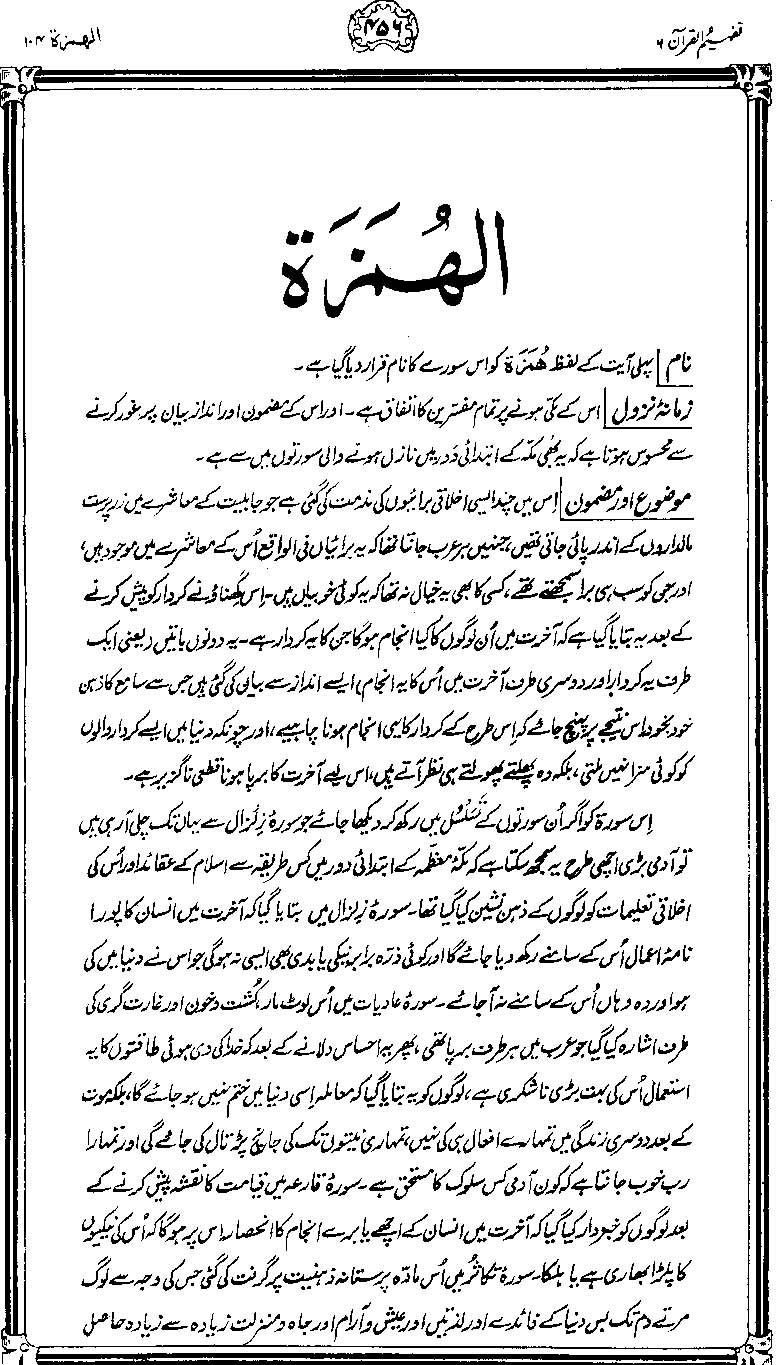 تفہیم القرآن ۶
۴۵۶
الہمزۃ ۱۰۴
الهُمَزَة
نام | پہلی آیت کے لفظ هُمَزَة کو اس سورے کا نام قرار دیا گیا ہے۔
زمانۂ نزول | اس کے مکی ہونے پر تمام مفسرین کا اتفاق ہے۔ اور اس کے مضمون اور انداز بیان پر غور کرنے
سے محسوس ہوتا ہے کہ یہ بھی مکہ کے ابتدائی دَور میں نازل ہونے والی سورتوں میں سے ہے۔
موضوع اور مضمون | اِس میں چند ایسی اخلاقی برائیوں کی مذمت کی گئی ہے جو جاہلیت کے معاشرے میں زر پرست
مالداروں کے اندر پائی جاتی تھیں، جنہیں ہر عرب جانتا تھا کہ یہ برائیاں فی الواقع اُس کے معاشرے میں موجود ہیں،
اور جن کو سب ہی برا سمجھتے تھے، کسی کا بھی یہ خیال نہ تھا کہ یہ کوئی خوبیاں ہیں۔ اِس گھناؤنے کردار کو پیش کرنے
کے بعد یہ بتایا گیا ہے کہ آخرت میں اُن لوگوں کا کیا انجام ہوگا جن کا یہ کردار ہے۔ یہ دونوں باتیں (یعنی ایک
طرف یہ کردار اور دوسری طرف آخرت میں اُس کا یہ انجام) ایسے انداز سے بیان کی گئی ہیں جس سے سامع کا ذہن
خود بخود اس نتیجے پر پہنچ جائے کہ اِس طرح کے کردار کا یہی انجام ہونا چاہیے، اور چونکہ دنیا میں ایسے کردار والوں
کو کوئی سزا نہیں ملتی، بلکہ وہ پھلتے پھولتے ہی نظر آتے ہیں، اس لیے آخرت کا برپا ہونا قطعی ناگزیر ہے۔
اِس سورۃ کو اگر اُن سورتوں کے تَسَلسُل میں رکھ کر دیکھا جائے جو سورۂ زلزال سے یہاں تک چلی آ رہی ہیں
تو آدمی بڑی اچھی طرح یہ سمجھ سکتا ہے کہ مکۂ معظمہ کے ابتدائی دور میں کس طریقہ سے اسلام کے عقائد اور اُس کی
اخلاقی تعلیمات کو لوگوں کے ذہن نشین کیا گیا تھا۔ سورۂ زلزال میں بتایا گیا کہ آخرت میں انسان کا پورا
نامۂ اعمال اُس کے سامنے رکھ دیا جائے گا اور کوئی ذرّہ برابر نیکی یا بدی بھی ایسی نہ ہوگی جو اس نے دنیا میں کی
ہو اور وہ وہاں اُس کے سامنے نہ آ جائے۔ سورۂ عادیات میں اُس لوٹ مار، کُشت و خون اور غارت گری کی
طرف اشارہ کیا گیا جو عرب میں ہر طرف برپا تھی، پھر یہ احساس دلانے کے بعد کہ خدا کی دی ہوئی طاقتوں کا یہ
استعمال اُس کی بہت بڑی ناشکری ہے، لوگوں کو یہ بتایا گیا کہ معاملہ اِسی دنیا میں ختم نہیں ہو جائے گا، بلکہ موت
کے بعد دوسری زندگی میں تمہارے افعال ہی کی نہیں، تمہاری نیتوں تک کی جانچ پڑتال کی جائے گی اور تمہارا
رب خوب جانتا ہے کہ کون آدمی کس سلوک کا مستحق ہے۔ سورۂ قارعہ میں قیامت کا نقشہ پیش کرنے کے
بعد لوگوں کو خبردار کیا گیا کہ آخرت میں انسان کے اچھے یا برے انجام کا انحصار اِس پر ہوگا کہ اُس کی نیکیوں
کا پلڑا بھاری ہے یا ہلکا۔ سورۂ تکاثُر میں اُس مادّہ پرستانہ ذہنیت پر گرفت کی گئی جس کی وجہ سے لوگ
مرتے دم تک بس دنیا کے فائدے اور لذتیں اور عیش و آرام اور جاہ و منزلت زیادہ سے زیادہ حاصل